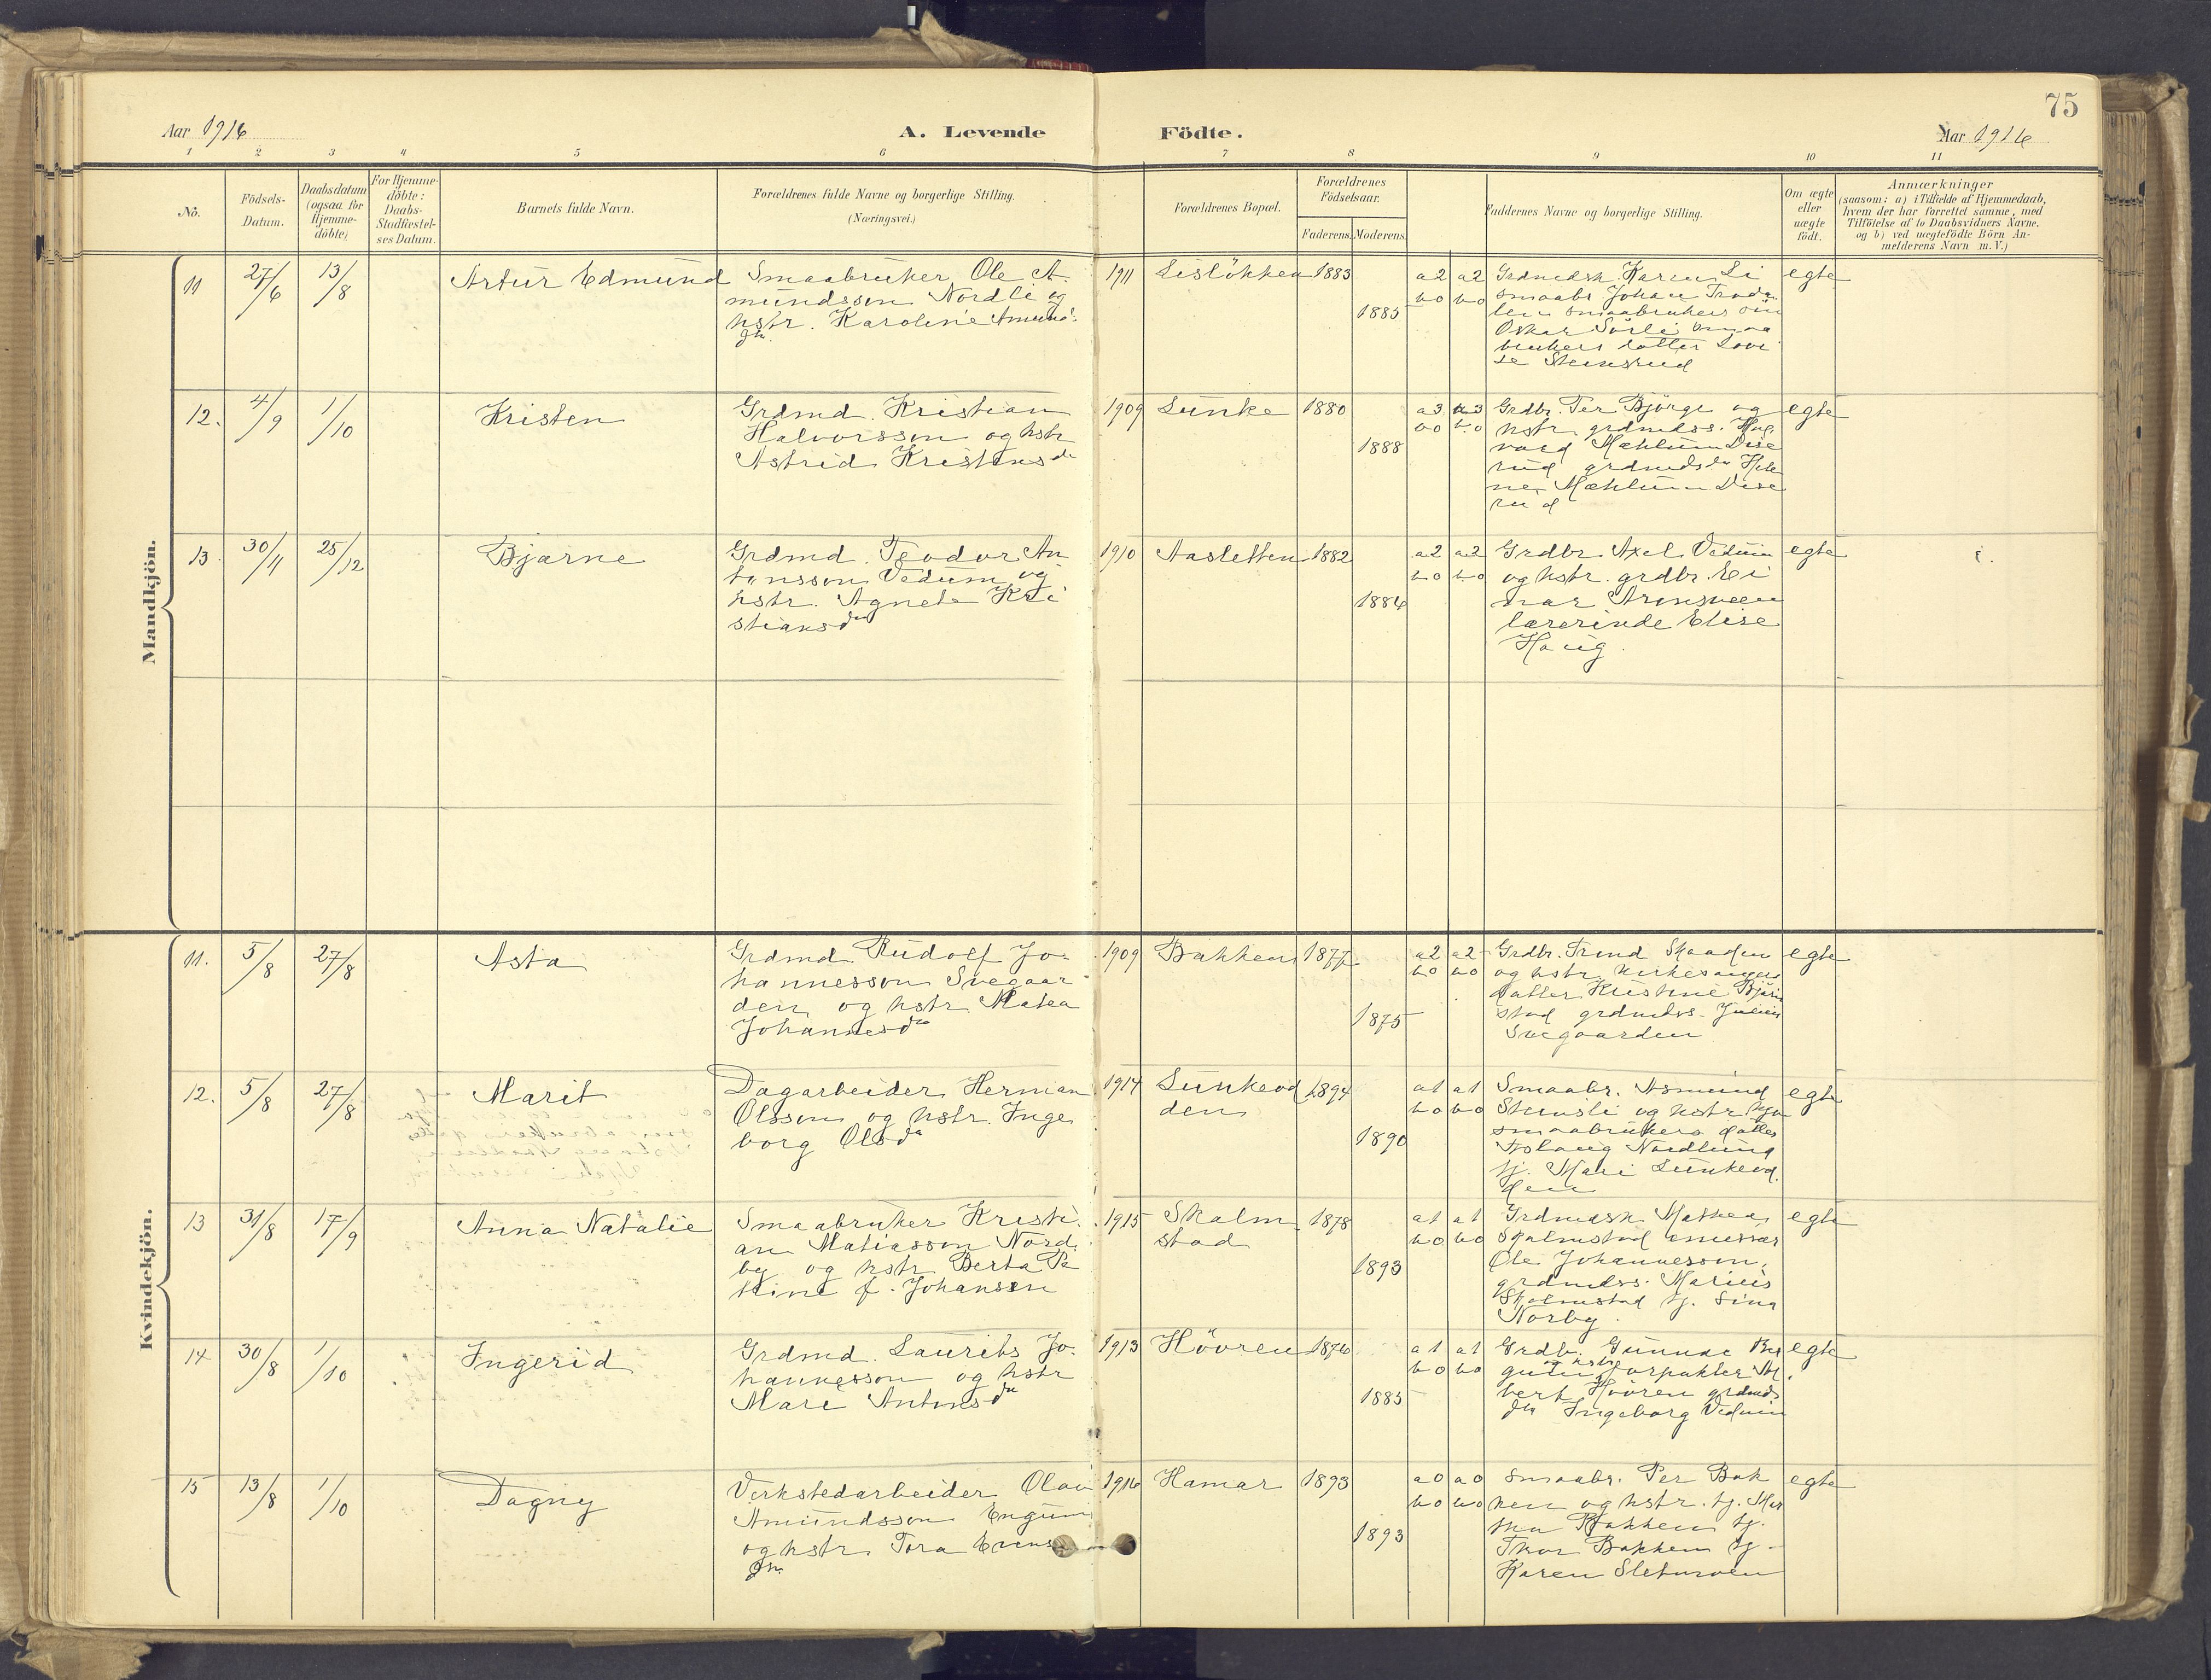 75
Aar 1916
A. Levende Födte.
Aar 1916
1 2 3 4 5 6 7 8 9 10 11
No.
Födsels-
Datum.
Daabsdatum
(ogsaa for
Hjemme-
döbte)
For Hjemme-
döbte:
Daabs-
Stadfæstel-
ses Datum.
Barnets fulde Navn.
Forældrenes fulde Navne og borgerlige Stilling.
(Næringsvei.)
Forældrenes Bopæl.
Forældrenes
Födselsaar.
Faderens. Moderens.
Faddernes Navne og borgerlige Stilling.
Om ægte
eller
uægte
födt.
Anmærkninger
(saasom: a) i Tilfælde af Hjemmedaab,
hvem der har forrettet samme, med
Tilföielse af to Daabsvidners Navne.
og b) ved uægtefödte Börn An-
melderens Navn m. V.)
Mandkjön.
11 27/6 13/8
Artur Edmund
Smaabruker Ole A-
mundsson Nordli og
hstr. Karoline Amunds-
dtr.
1911
Lislökken
1883
1885
a2 a2
b0 b0
Grdmdsk. Karen Li
smaabr Johan
smaabrukers
Oskar Sörli smaa
brukers datter Lovi
se Stensrud
egte
12. 4/9 1/10
Kristen
Grdmd. Kristian
Halvorsson og hstr
Astrid Kristensdr
1909
Lunke
1880
1888
a3 a3
b0 b0
Grdbr. Per Björge og
hstr grdmdss. Hag
vard Mæhlum Dise
rud grdmdsdr Hele
ne Mæhlum Dise
rud
egte
13. 30/11 25/12
Bjarne
Grdmd. Teodor An
tonsson Vedum og
hstr. Agnete Kri
stiansdtr
1910
Aasletten
1882
1884
a2 a2
b0 b0
Grdbr Axel Vedum
og hstr. grdbr. Ei
nar Arnsveen
lærerinde Elise
Haug.
egte
Kvindekjön.
11. 5/8 27/8
Asta
Grdmd. Rudolf Jo-
hannesson Svegaar
den og hstr Matea
Johannesdr
1909
Bakken
1877
1875
a2 a2
b0 b0
Grdbr. Trond Skaaden
og hstr. kirkesangers
datter Kristine
stad grdmdss. Julius
Svegaarden
egte
12. 5/8 27/8
Marit
Dagarbeider Herman
Olsson og hstr. Inge
borg Olsdr
1914
Lunkeod
den
1894
1890
a1 a1
b0 b0
Smaabr. Asmund
Stensli og hstr
smaabrukers datter
Aslaug Nordlund
tj. Mari Lunkeod
den
egte
13 31/8 17/9
Anna Natalie
Smaabruker Kristi-
an Matiasson Nord
by og hstr. Berta Pe
trine f. Johansen
1915
Skalm
stad
1878
1893
a1 a1
b0 b0
Grdmdsk Mathea
Skalmstad
Ole Johannesson,
grdmdss. Marius
Skalmstad tj. Sina
Norby.
egte
14 30/8 1/10
Ingerid
Grdmd. Laurits Jo-
hannesson og hstr
Mari Antonsdtr
1913
Hövren
1876
1885
a1 a1
b0 b0
Grdbr. Gunnar
og hstr. forpakter Al
bert Hövren grdmds
dtr Ingeborg Vedum
egte
15 13/8 1/10
Dagny
Verkstedarbeider Olav
Amundsson Engum
og hstr. Tora Evens
dtr.
1916
Hamar
1893
1893
a0 a0
b0 b0
Smaabr. Per Bak
ken og hstr. tj. Mar
tha Bakken tj.
Thor Bakken tj.
Karen Sletmoen
egte